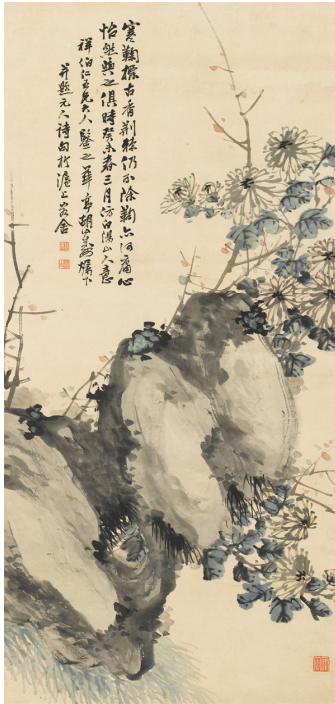 寒鞠標古香荊棘仍不除鞠亦何庸心
怡然與之俱時癸未春三月仿白陽山人意
祥伯仁兄大人鑒之華亭胡
并題元人詩句於滬上客舍